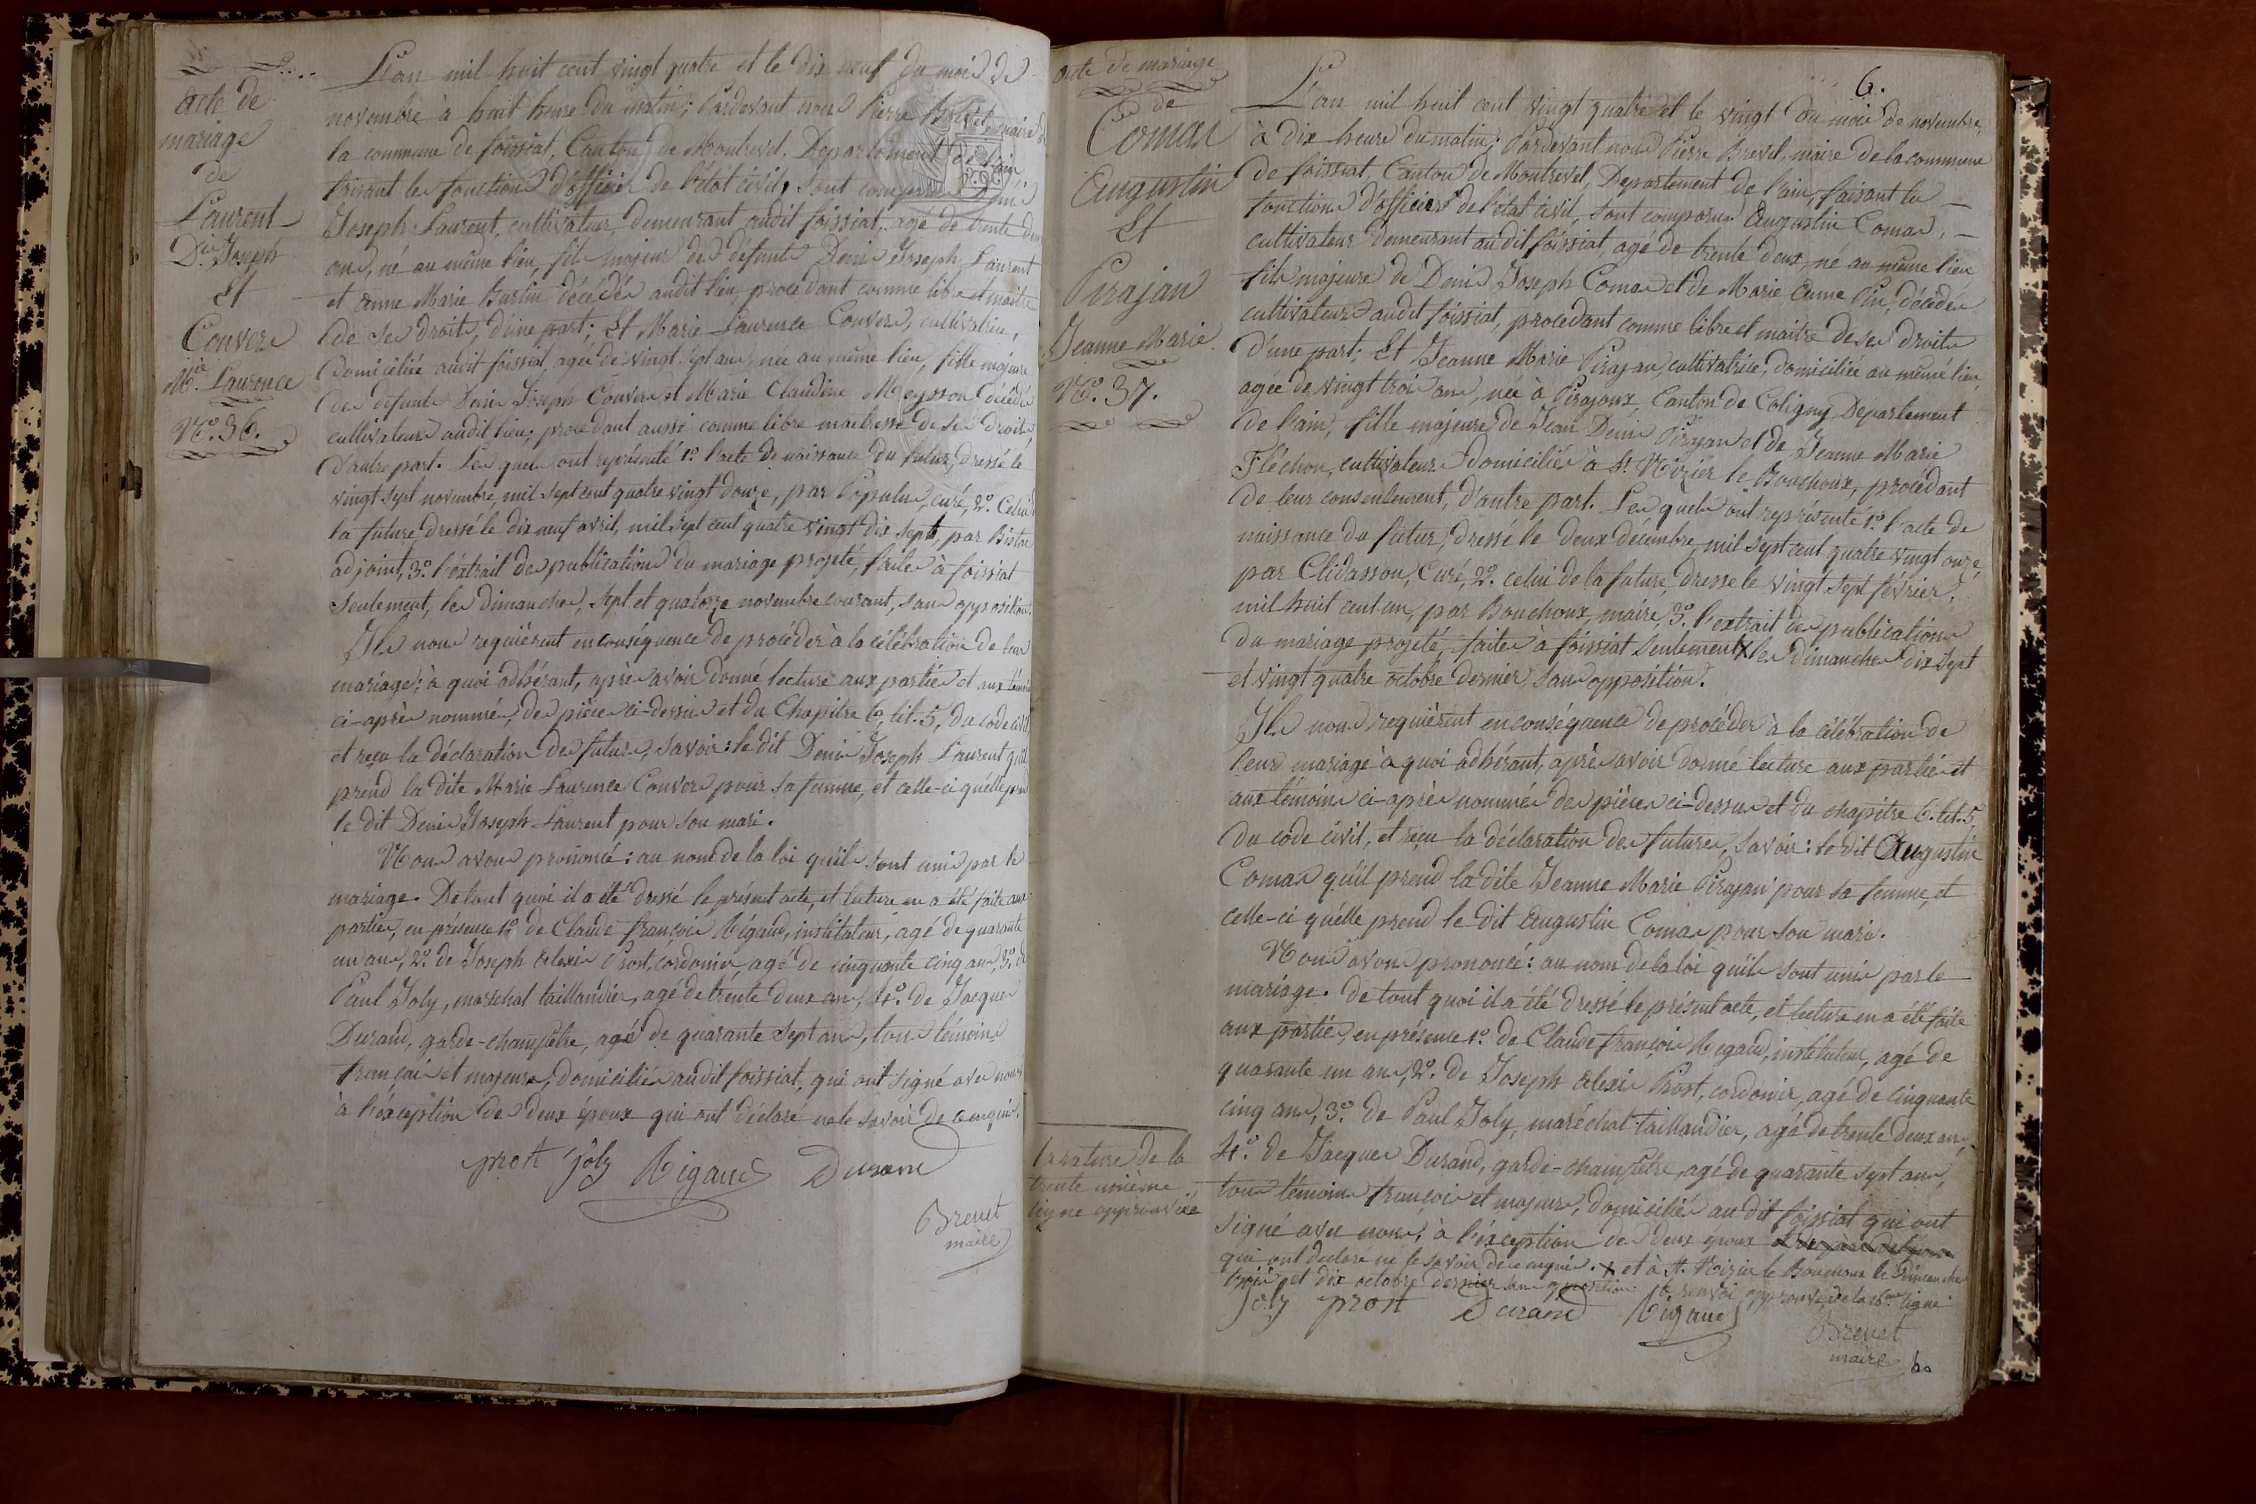 acte de
mariage
de
Laurent
Dis Joseph
Et
Convers
Mie Laurence
N.° 36.
L'an mil huit cent vingt quatre et le dix neuf du mois de
novembre à huit heures du matin; Pardevant nous Pierre Brevet, maire de
la commune de foissiat, Canton de Montrevel, Departement de l'ain,
faisant les fonctions d'officier de l'état civil, sont comparus Denis
Joseph Laurent, cultivateur, demeurant audit foissiat, agé de trente deux
ans, né au même lieu, fils majeur des défunts Denis Joseph Laurent
et anne Marie Burtin décédés audit lieu, procédant comme libre et maitre
de ses droits, d'une part; Et Marie Laurence Convers, cultivatrice,
domiciliée audit foissiat, agée de vingt sept ans, née au même lieu, fille majeure
des défunts Denis Joseph Convers et Marie Claudine Meysson décédés
cultivateurs audit lieu; procédant aussi comme libre maitresse de ses droits
d'autre part. Les quels ont représenté 1.° l'acte de naissance du futur, dressé le
vingt sept novembre, mil sept cent quatre vingt douze, par Populus, curé, 2.° Celui de
la future, dressé le dix neuf avril, mil sept cent quatre vingt dix sept, par
adjoint, 3.° l'extrait des publications du mariage projeté, faites à foissiat
seulement, les dimanches, sept et quatorze novembre courant, sans opposition.
Ils nous requièrent en conséquence de procéder à la célébration de leur
mariage; à quoi adhérant, après avoir donné lecture aux parties et aux témoins
ci-après nommés, des pièces ci-dessus et du Chapitre 6, tit. 5, du code civil
et reçu la déclaration des futurs, savoir: le dit Denis Joseph Laurent qu'il
prend la dite Marie Laurence Convers pour sa femme, et celle-ci quélle prend
le dit Denis Joseph Laurent pour son mari.
Nous avons prononcé: au nom de la loi qu'ils sont unis par le
mariage. De tout quoi il a été dressé le présent acte, et lecture en a été faite aux
parties, en présence 1.° de Claude françois Rigaud, instituteur, agé de quarante
un ans, 2.° de Joseph alexis Prost, cordonier, agé de cinquante cinq ans, 3.° de
Paul Joly, maréchal taillandier, agé de trente deux ans, 4.° de Jacques
Durand, garde-champêtre, agé de quarante sept ans, tous témoins
français et majeurs, domiciliés audit foissiat, qui ont signé avec nous
à l'éxception des deux époux qui ont déclaré ne le savoir de ce enquis.
prost joly Rigaud Durand
Brevet
maire
acte de mariage
de
Comas
Augustin
Et
Pirajan
Jeanne Marie
N.° 37.
6.
L'an mil huit cent vingt quatre et le vingt du mois de novembre,
à dix heures du matin; Pardevant nous Pierre Brevet, maire de la commune
de foissiat, Canton de Montrevel, Departement de l'ain, faisant les
fonctions d'officier de l'état civil, sont comparus Augustin Comas,
cultivateur demeurant audit foissiat, agé de trente deux, né au même lieu
fils majeur de Denis Joseph Comas et de Marie Anne Pin, décédés
cultivateurs audit foissiat, procédant comme libre et maitre de ses droits
d'une part; Et Jeanne Marie Pirajan, cultivatrice, domiciliée au même lieu,
agée de vingt trois ans, née à Pirajoux, Canton de Coligny Departement
de l'ain, fille majeure de Jean Denis Pirajan et de Jeanne Marie
Fléchon, cultivateurs domiciliés à St. Nizier le Bouchoux, procédant
de leur consentement, d'autre part. Les quels ont représenté 1.° l'acte de
naissance du futur, dressé le deux décembre, mil sept cent quatre vingt onze,
par Clidasson, Curé, 2.° celui de la future, dressé le vingt sept février,
mil huit cent un, par Bouchoux, maire, 3.° l'extrait des publications
du mariage projeté, faites à foissiat seulement X les dimanches dix sept
et vingt quatre octobre dernier, sans opposition.
Ils nous requièrent en conséquence de procéder à la célébration de
leurs mariage à quoi adhérant, après avoir donné lecture aux parties et
aux témoins ci-après nommés des pièces ci-dessus et du chapitre 6. tit. 5
du code civil, et reçu la déclaration des futurs, savoir: le dit Augustin
Comas qu'il prend la dite Jeanne Marie Pirajan pour sa femme, et
celle-ci quélle prend le dit Augustin Comas pour son mari.
Nous avons prononcé: au nom de la loi qu'ils sont unis par le
mariage. de tout quoi il a été dressé le présent acte, et lecture en a été faite
aux parties, en présence 1.° de Claude françois Rigaud, instituteur, agé de
quarante un ans, 2.° de Joseph alexis Prost, cordonier, agé de cinquante
cinq ans, 3.° de Paul Joly, maréchal taillandier, agé de trente deux ans,
4.° de Jacques Durand, garde-champêtre, agé de quarante sept ans,
tous témoins françois et majeurs, domiciliés au dit foissiat qui ont
signé avec nous, à l'éxception des deux époux
qui ont déclaré ne le savoir de ce enquis. X et à St. Nizier le Bouchoux les Dimanches
trois et dix octobre dernier sans opposition. le renvoi approuvé de la 16.me ligne
la rature de la
trente unième
ligne approuvée
Joly prost Durand Rigaud
Brevet
maire